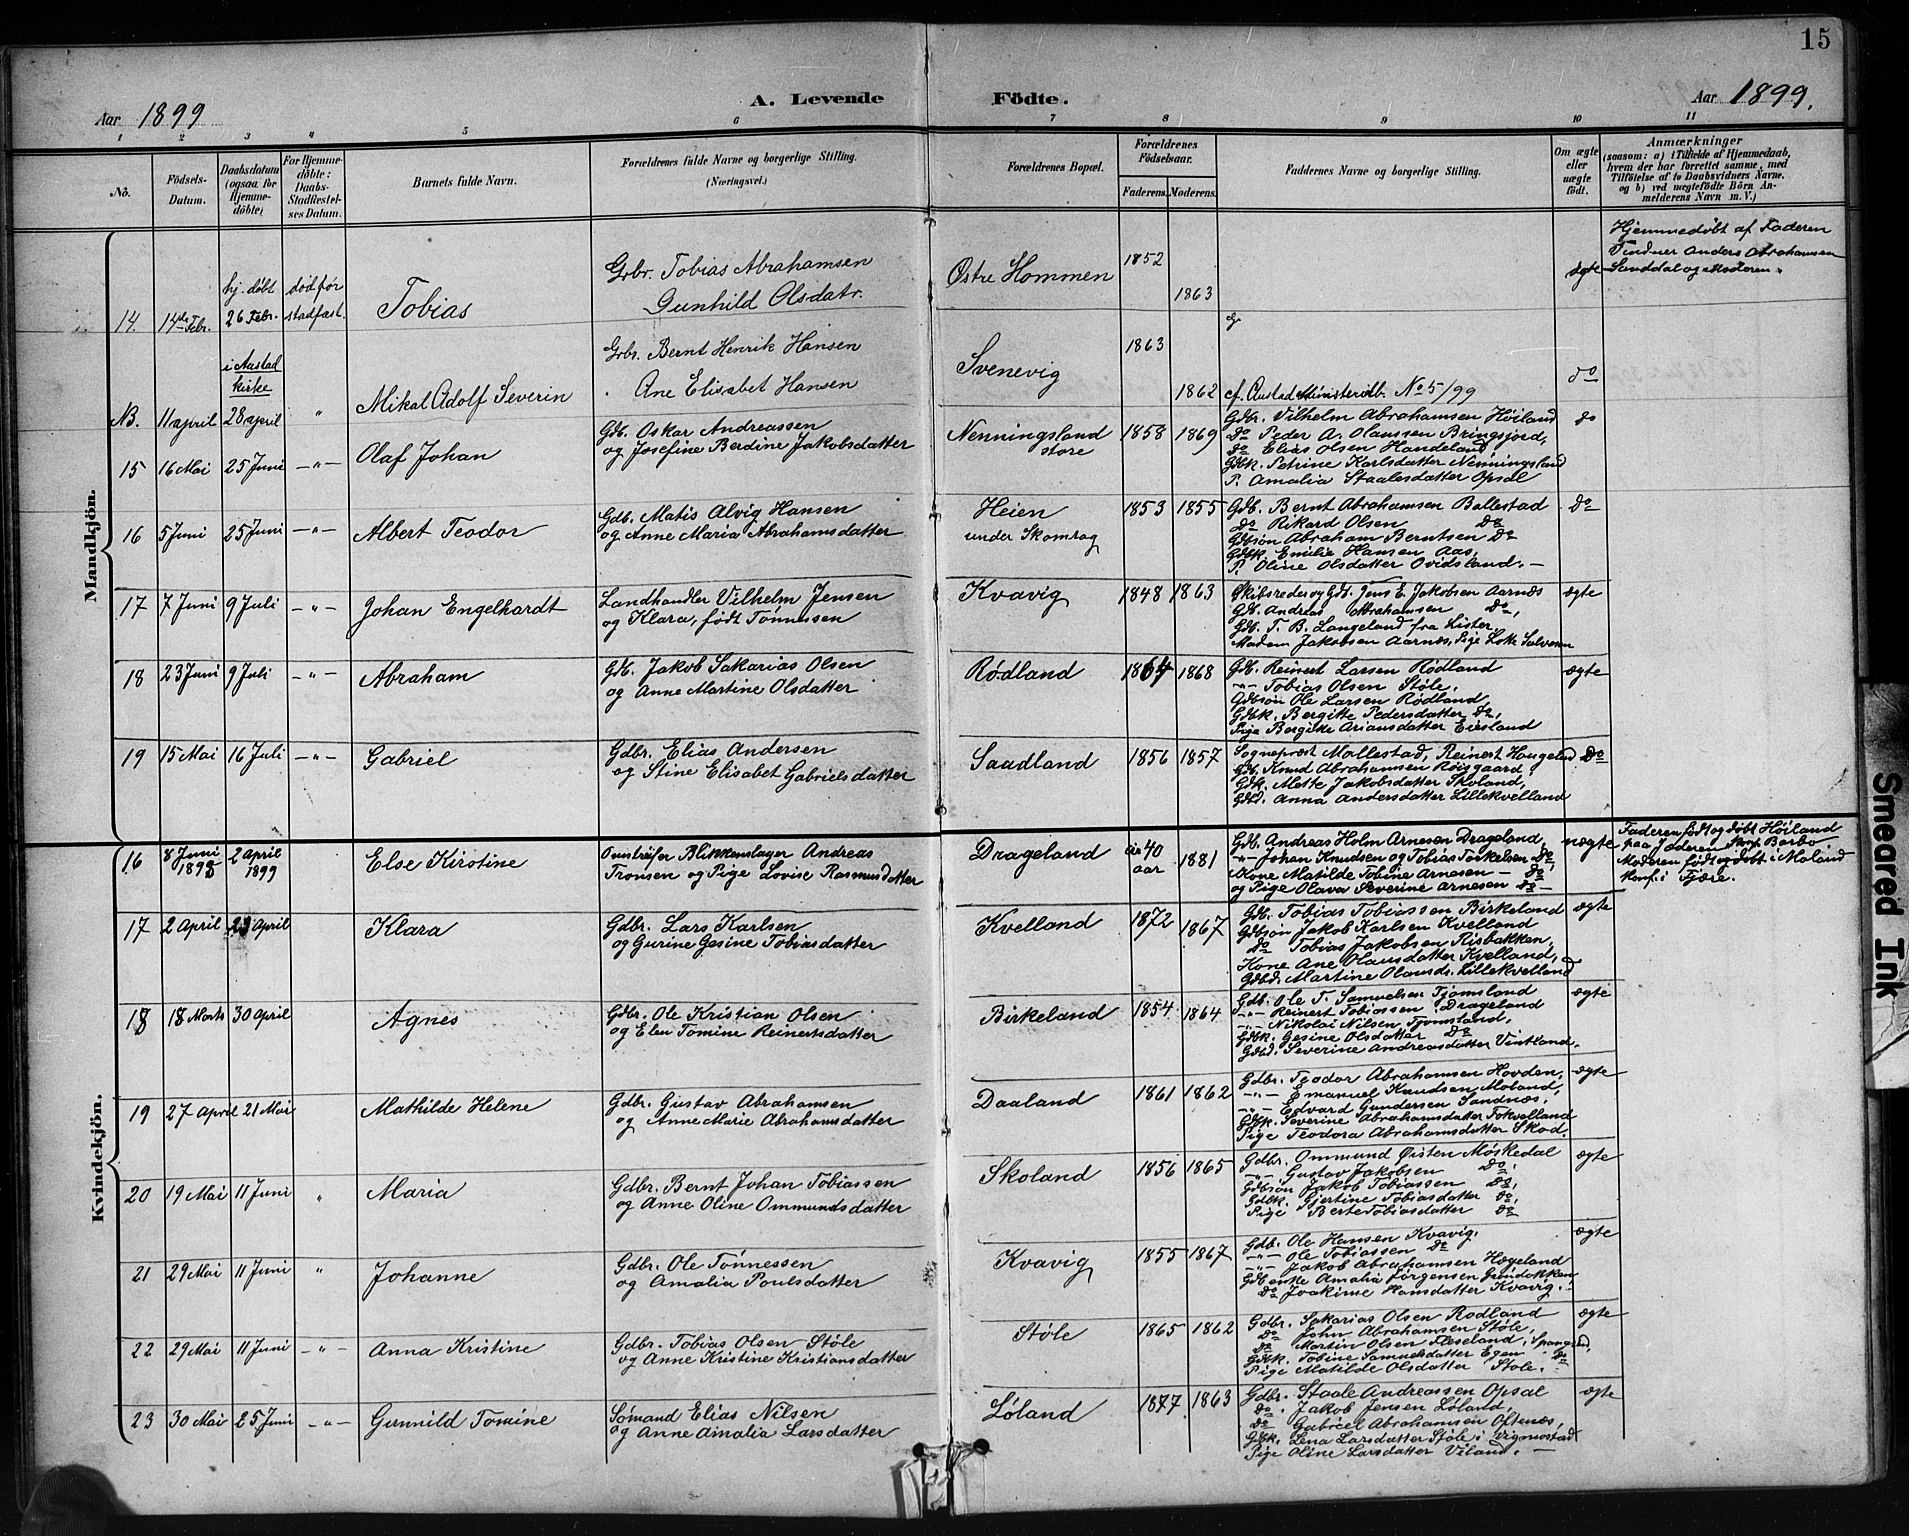 15
Aar 1899
A. Levende Födte.
Aar 1899.
1 2 3 4 5 6 7 8 9 10 11
No.
Födsels-Datum.
Daabsdatum (ogsaa for Hjemmedöbte)
For Hjemmedöbte: Daabs-Stadfestelses Datum.
Barnets fulde Navn.
Forældrenes fulde Navne og borgerlige Stilling. (Næringsvei.)
Forældrenes Bopæl.
Forældrenes Födselsaar.
Faderens. Moderens.
Faddernes Navne og borgerlige Stilling.
Om ægte eller uægte födt.
Anmærkninger
(saasom: a) i Tilfælde af Hjemmedaab,
hvem der har forrettet samme, med
Tilföielse af to Daabsvidners Navne.
og b) ved uægtefödte Börn An-
melderens Navn m. V.)
Mandkjön.
14 14de Febr. hj. døbt 26 Febr. død før stadfæst. Tobias
Grbr. Tobias Abrahamsen
Gunhild Olsdatr.
Østre Hommen 1852 1863 ægte
Hjemmedøbt af Faderen
Vidner Anders Abrahamsen
Sanddal og Moderen.
NB. 11 april i Austad kirke 28 april " Mikal Adolf Severin
Grbr. Bernt Henrik Hansen
Ane Elisabet Hansen
Svenevig 1863 1862 cf. Austad Ministerialb. No 5/99 do
15 16 Mai 25 Juni -"- Olaf Johan
Gdb. Oskar Andreassen
og Josefine Berdine Jakobsdatter
Nenningsland store 1858 1869
Gdbr. Vilhelm Abrahamsen Høiland
Do Peder A. Olaussen Bringsjord,
Do Elias Olsen Handeland,
Gdbk. Petrine Karlsdatter Nenningsland
P. Amalia Staalesdatter Opsal
do
16 5 Juni 25 Juni -"- Albert Teodor
Gdb. Matis Alvig Hansen
og Anne Maria Abrahamsdatter
Heien under Skomrag 1853 1855
Gdb. Bernt Abrahamsen Ballestad
Do Rikard Olsen Do
Gdbsøn Abraham Berntsen Do
Gdbk. Emilie Hansen Aas,
P. Oline Olsdatter Ovidsland. -
Do
17 7 Juni 9 Juli -"- Johan Engelhardt
Landhandler Vilhelm Jensen
og Klara, født Tønnesen
Kvavig 1848 1863
Skibsreder og Gdb. Jens E. Jakobsen Aarnæs
Gdb. Andreas Abrahamsen Do,
Gdb. T. B. Langeland fra Lister,
Madam Jakobsen Aarnæs, Pige Lote Salvesen
ægte
18 23 Juni 9 Juli -"- Abraham
Gdb. Jakob Sakarias Olsen
og Anne Martine Olsdatter
Rødland 1864 1868
Gdb. Reinert Larsen Rødland
-"- Tobias Olsen Støle,
Gdbsøn Ole Larsen Rødland
Gdbk. Bergitte Pedersdatter Do,
Pige Bergitte Ariansdatter Eiesland
ægte
19 15 Mai 16 Juli -"- Gabriel
Gdbr. Elias Andersen
og Stine Elisabet Gabrielsdatter
Saadland 1856 1857
Sognepræst Mollestad, Reinert Haugeland
Gdb. Knud Abrahamsen Røisgaard,
Gdk. Mette Jakobsdatter Skoland,
Gdbd. Anna Andersdatter Lillekvelland
Do
Kvindekjön.
16 8 Juni 1898 2 April 1899 Else Kirstine
Omstreifer Blikkenslager Andreas
Tronsen og Pige Lovise Rasmusdatter
Drageland ca 40 aar 1881
Gdb. Andreas Holm Arnesen Drageland,
-"- Johan Knudsen og Tobias Terkelsen Do,
Kone Matilde Tobine Arnesen - Do
og Pige Olava Severine Arnesen Do -
uægte
Faderen født og døbt Høiland
paa Jæderen Konf. Barbo
Moderen født og døbt i Moland
Konf. i Fjære.
17 2 April 23 April Klara
Gdbr. Lars Karlsen
og Gurine Gesine Tobiasdatter
Kvelland 1872 1867
Gdb. Tobias Tobiassen Birkeland
Gdbsøn Jakob Karlsen Kvelland
Do Tobias Jakobsen Risbakken,
Kone Ane Olausdatter Kvelland,
Gdbd. Martine Olausds. Lillekvelland
ægte
18 18 Marts 30 April Agnes
Gdbr. Ole Kristian Olsen
og Elen Tomine Reinertsdatter
Birkeland 1854 1864
Gdb. Ole T. Samuelsen Tjomsland
-"- Reinert Tobiassen Drageland
-"- Nikolai Nilsen Tjomsland,
Gdbk. Gesine Olsdatter Do
Gdbd. Severine Andreasdatter Vintland.
ægte
19 27 April 21 Mai Mathilde Helene
Gdbr. Gustav Abrahamsen
og Anne Marie Abrahamsdatter
Daaland 1861 1862
Gdbr. Teodor Abrahamsen Hovden,
-"- Emanuel Knudsen Moland,
-"- Edvard Gundersen Sandnæs,
Gdbk. Severine Abrahamsdatter Fokvelland
Pige Teodora Abrahamsdatter Skod.
ægte
20 19 Mai 11 Juni " Maria
Gdbr. Bernt Johan Tobiassen
og Anne Oline Ommundsdatter
Skoland 1856 1865
Gdbr. Ommund Øisten Møskedal
-"- Gustav Jakobsen Do,
Gdbsøn Jakob Tobiassen Do
Gdbk. Gjertine Tobiasdatter Do,
Pige Berte Tobiasdatter Do
ægte
21 29 Mai 11 Juni " Johanne
Gdbr. Ole Tønnessen
og Amalia Poulsdatter
Kvavig 1855 1867
Gdb. Ole Hansen Kvavig.
-"- Ole Tobiassen Do
-"- Jakob Abrahamsen Hægeland
Gdb enke Amalia Jørgensen Grindokken
Do Joakime Hansdatter Kvavig.
ægte
22 29 Mai 11 Juni -"- Anna Kristine
Gdbr. Tobias Olsen Støle
og Anne Kristine Kristiansdatter
Støle 1865 1862
Gdbr. Sakarias Olsen Rødland
Do John Abrahamsen Støle,
Do Martin Olsen Fleseland i Spangereid,
Gdbk. Tobine Samuelsdatter Egen Do
Pige Matilde Olsdatter Støle.
ægte
23 30 Mai 25 Juni -"- Gunnild Tomine
Sømand Elias Nilsen
og Anne Amalia Larsdatter
Løland 1877 1863
Gdbr. Staale Andreassen Opsal
Do. Jakob Jensen Løland,
Do Gabriel Abrahamsen Oftenæs,
Gdbk. Lena Larsdatter Støle i Vigmostad
Pige Oline Larsdatter Viland. -
ægte
Smeared Ink